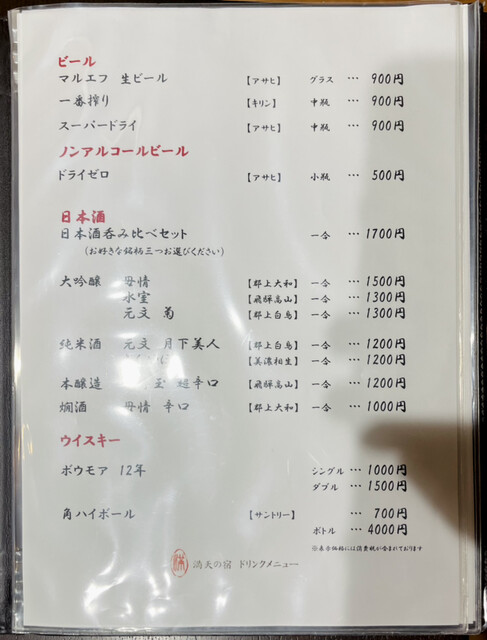 ビール
マルエフ 生ビール 【アサヒ】 グラス … 900円
一番搾り 【キリン】 中瓶 … 900円
スーパードライ 【アサヒ】 中瓶 … 900円
ノンアルコールビール
ドライゼロ 【アサヒ】 小瓶 … 500円
日本酒
日本酒呑み比べセット 一合 … 1700円
(お好きな銘柄三つお選びください)
大吟醸 母情 【郡上大和】 一合 … 1500円
氷室 【飛騨高山】 一合 … 1300円
元文 菊 【郡上白鳥】 一合 … 1300円
純米酒 元文 月下美人 【郡上白鳥】 一合 … 1200円
【美濃相生】 一合 … 1200円
本醸造 玉 超辛口 【飛騨高山】 一合 … 1200円
燗酒 母情 辛口 【郡上大和】 一合 … 1000円
ウイスキー
ボウモア 12年 シングル … 1000円
ダブル … 1500円
角ハイボール 【サントリー】 … 700円
ボトル … 4000円
※表示価格には消費税が含まれております
満天の宿 ドリンクメニュー